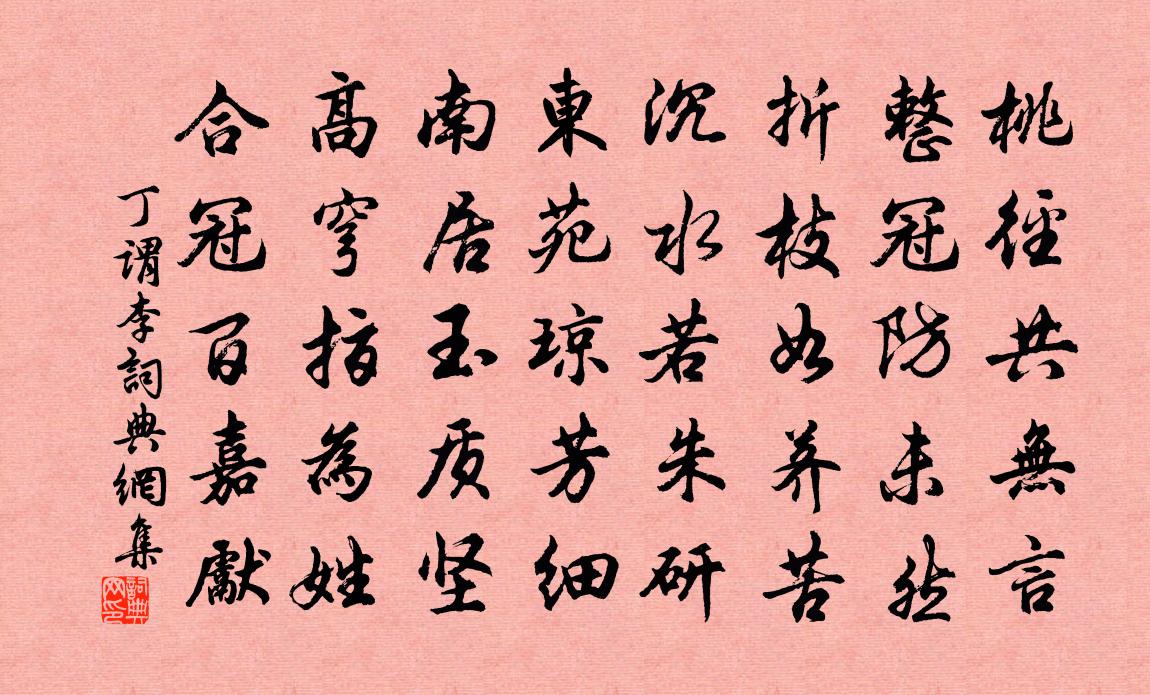 桃徑共無言
整冠防未然
折枝如养苦
沉水若朱研
東苑琼芳細
南居玉质坚
高穹指為姓
合冠百嘉獻
丁謂李詞典網集
詞典网印